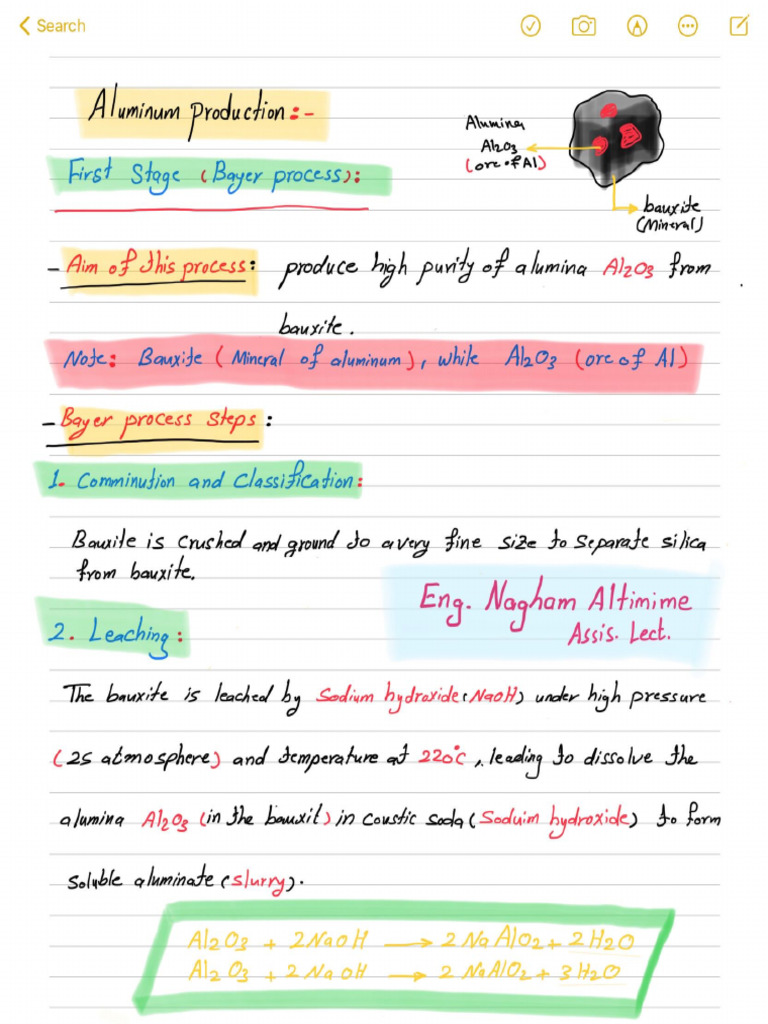 Search
Aluminum production:-
Alumina
Al2O3
(ore of Al)
bauxite
(Mineral)
First Stage (Bayer process):
- Aim of this process: produce high purity of alumina Al2O3 from
bauxite.
Note: Bauxite (Mineral of aluminum), while Al2O3 (ore of Al)
- Bayer process Steps:
1. Comminution and Classification:
Bauxite is crushed and ground to a very fine size to separate silica
from bauxite.
Eng. Nagham Altimime
Assis. Lect.
2. Leaching:
The bauxite is leached by Sodium hydroxide (NaOH) under high pressure
(25 atmosphere) and temperature at 220°C, leading to dissolve the
alumina Al2O3 (in the bauxit) in coustic soda (Soduim hydroxide) to form
Soluble aluminate (slurry).
Al2O3 + 2NaOH → 2NaAlO2 + 2H2O
Al2O3 + 2NaOH → 2NaAlO2 + 3H2O